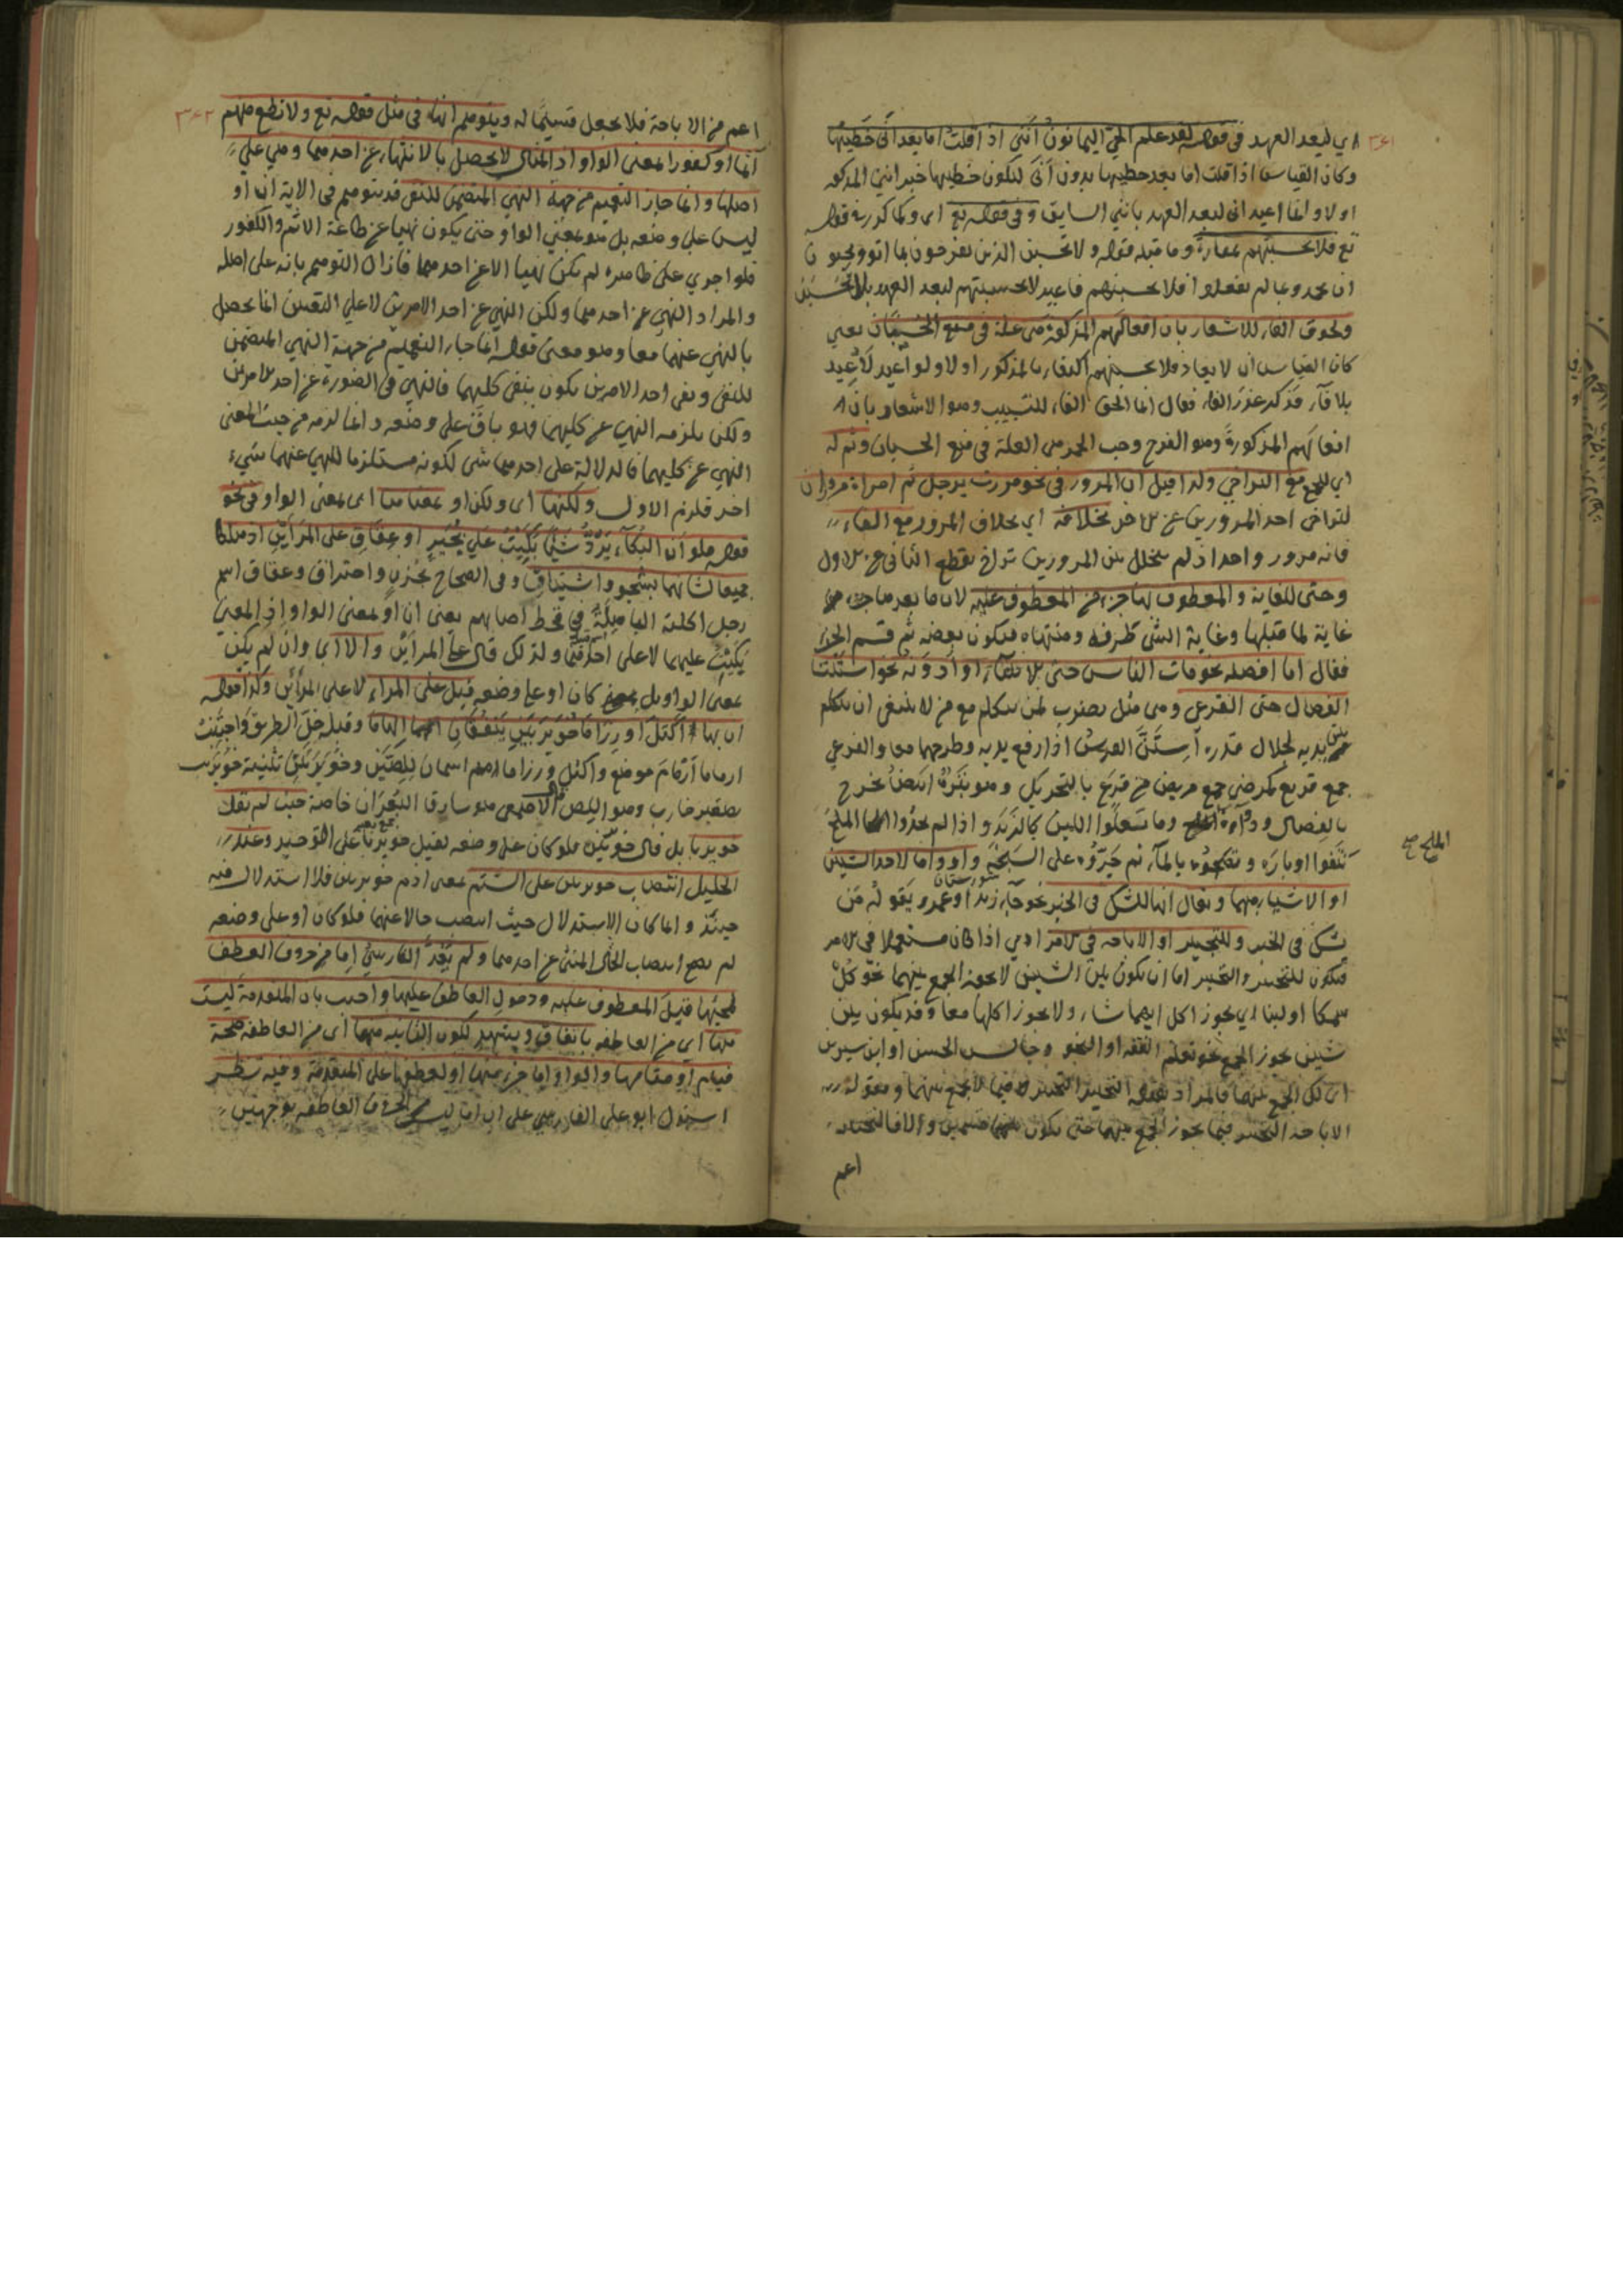 ٣٤١
اي لبعد العهد في قوله لقد علم الحي اليمانون أنني اذا قلت اما بعد أنّي خطيبها
وكان القياس اذا قلت اما بعد خطيبها بدون أنّي ليكون خطيبها خبر انني المذكور
اولا وانما اعيد اني لبعد العهد بانني السابق وفي قوله تع اى وكما كرر في قوله
تع فلا تحسبنهم بمفازة وما قبله قوله ولا تحسبن الذين يفرحون بما اتوا ويحبون
ان يحمدوا بما لم يفعلوا فلا تحسبنهم فاعيد لا تحسبنهم لبعد العهد بلا تحسبن
ولحوق الفاء للاشعار بان افعالهم المذكورة هى علة في منع الحسبان يعني
كان القياس ان لا يعاد فلا تحسبنهم اكتفاء بالمذكور اولا ولو اعيد لأعيد
بلا فاء فذكر عذر الفاء فقال انما الحق الفاء للتسبيب وهو الاشعار بان
افعالهم المذكورة وهو الفرح وحب الحمد هى العلة في منع الحسبان وثم له
اي للجمع مع التراخي ولذا قيل ان المرور في نحو مررت برجل ثم امراة مروران
لتراخى احد المرورين عن الاخر بخلافه اي بخلاف المرور مع الفاء
فانه مرور واحد اذ لم يتخلل بين المرورين تراخ يقطع الثاني عن الاول
وحتى للغاية والمعطوف بها جزء من المعطوف عليه لان ما بعدها جزء
غاية لما قبلها وغاية الشى طرفه ومنتهاه فيكون بعضه ثم قسم الجزء
فقال اما افضله نحو مات الناس حتى الانبياء او ادونه نحو استنت
الفصال حتى القرعى وهى مثل يضرب لمن يتكلم مع من لا ينبغى ان يتكلم
بين يديه لجلال قدره استن الفرس اذا رفع يديه وطرحهما معا والقرعى
جمع قريع كمرضى جمع مريض من قرع بالتحريك وهو بثر ابيض يخرج
بالفصال ودواؤه الملح وما تعلوا اللبن كالزبد واذا لم يجدوا الملح
الملح صح
نتفوا اوباره ونضحوه بالماء ثم جروه على السبخة واو واما لاحد الشيئين
او الاشياء مبهما ويقال انها للشك في الخبر نحو جاء زيد او عمرو يقوله من
يشك في الخبر وللتخيير او الاباحة في الامر اى اذا كان مستعملا في الامر
فيكون للتخيير والتخيير اما ان يكون بين الشيئين لا يجوز الجمع بينهما نحو كل
سمكا او لبنا اى يجوز اكل ايهما شاء ولا يجوز اكلهما معا وقد يكون بين
شيئين يجوز الجمع نحو تعلم الفقه او النحو وجالس الحسن او ابن سيرين
اى لك الجمع بينهما فالمراد بقوله التخيير التخيير فيما لا يجمع بينهما وبقوله
الاباحة التخيير فيما يجوز الجمع بينهما حتى يكون قسيمين والا فالتخيير
اعم
٣٤٢
اعم من الاباحة فلا يجعل قسيما له ويتوهم انها في مثل قوله تع ولا تطع منهم
آثما او كفورا بمعنى الواو اذ الامتثال لا يحصل بالانتهاء عن احدهما وهي على
اصلها وانما جاز التعميم من جهة النهي المتضمن للنفى قد يتوهم في الاية ان او
ليس على وضعه بل هو بمعنى الواو حتى يكون نهيا عن طاعة الاثم والكفور
فلو اجري على ظاهره لم يكن نهيا الا عن احدهما فازال التوهم بانه على اصله
والمراد النهي عن احدهما ولكن النهي عن احد الامرين لا على التعيين انما يحصل
بالنهي عنهما معا وهو معنى قوله انما جاء التعميم من جهة النهي المتضمن
للنفى ونفى احد الامرين يكون بنفى كليهما فالنهي في الصورة عن احد الامرين
ولكن يلزمه النهي عن كليهما فهو باق على وضعه وانما لزمه من حيث المعنى
النهي عن كليهما فالدلالة على احدهما شى لكونه مستلزما للنهي عنهما شيء
اخر فلزم الاول ولكنها اى ولكن او بمعناها اى بمعنى الواو في نحو
قوله فلو ان البكاء يرد شيئا بكيت على بجير او عفاق على المرأين اذ هلكا
جميعا لشانهما بشجو واشتياق وفي الصحاح بحزن واحتراق وعفاق اسم
رجل اكلته الباهلة في قحط اصابهم يعنى ان او بمعنى الواو اذ المعنى
بكيت عليهما لا على احدهما ولذلك قال على المرأين والا اى وان لم يكن
بمعنى الواو بل كان او على وضعه قيل على المراء لا على المرأين وكذا قوله
ان بها اكتل او رزاما خويربين ينقفان الهاما وقبله خل الطريق واجتنب
ارماما ارمام موضع واكتل ورزاما اسمان للصين وخويربين تثنية خويرب
تصغير خارب وهو اللص قال الاصمعي هو سارق البعران خاصة حيث لم يقل
خويربا بل قال خويربين فلو كان على وضعه لقيل خويربا على التوحيد وعند
الخليل انتصاب خويربين على الشتم بمعنى اذم خويربين فلا استدلال فيه
حينئذ وانما كان الاستدلال حيث انتصب حالا عنهما فلو كان او على وضعه
لم يصح انتصاب الحال المثنى عن احدهما ولم يعد الفارسي اما من حروف العطف
لمجيئها قبل المعطوف عليه ودخول العاطف عليها واجيب بان المتقدمة ليست
منها اى من العاطفه باتفاق ويشهد لكون الثانية منها اى من العاطفه صحة
قيام او مقامها والواو اما جزء منها او لعطفها على المتقدمة وفيه نظر
استدل ابو علي الفارسي على ان اما ليست من الحروف العاطفه بوجهين